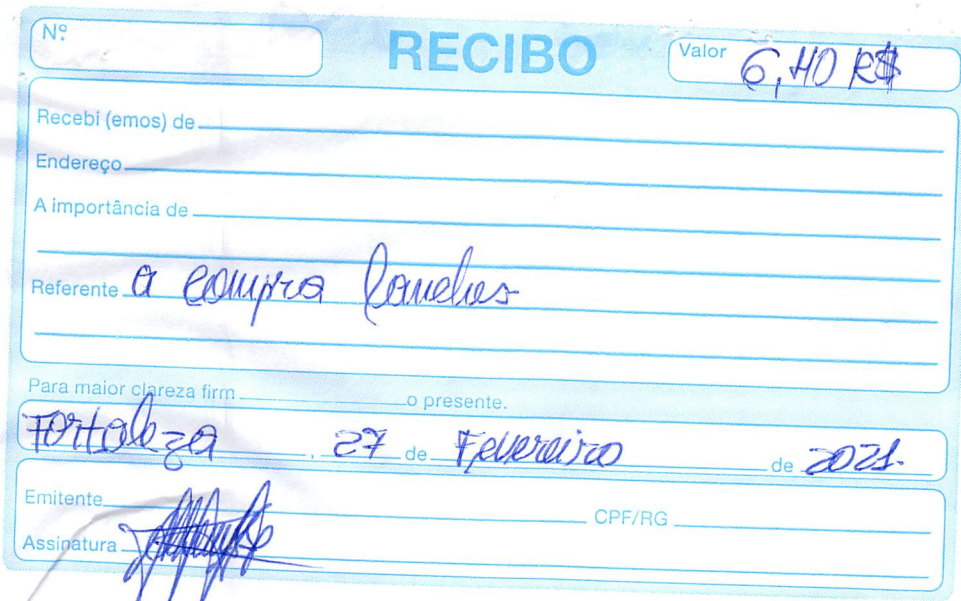 Nº
RECIBO
Valor 6,40 R$
Recebi (emos) de
Endereço
A importância de
Referente a compra lanches
Para maior clareza firm o presente.
Fortaleza, 27 de Fevereiro de 2021.
Emitente CPF/RG
Assinatura